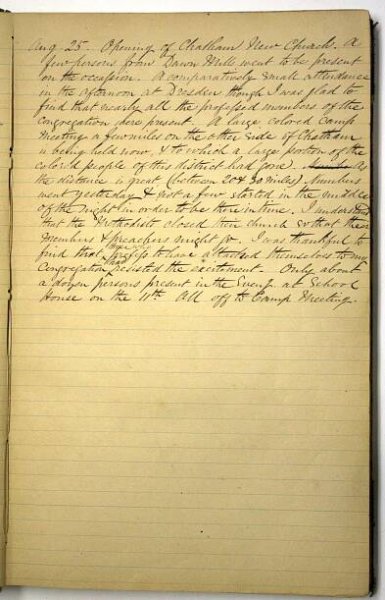 Aug 25 - Opening of Chatham New Church. A
few persons from Dawn Mills went to be present
on the occasion. A comparatively small attendance
in the afternoon at Dresden though I was glad to
find that nearly all the professed members of the
congregation were present. A large colored Camp
Meeting a few miles on the other side of Chatham
is being held now, & to which a large portion of the
colored people of this district had gone. As
the distance is great (between 20 & 30 miles) Numbers
went yesterday & not a few started in the middle
of the night in order to be there in time. I understand
that the Methodist closed their church so that their
members & preachers might go. I was thankful to
find that profess to have attached themselves to my
Congregation had resisted the excitement - Only about
a dozen persons present in the Eveng. at School
House on the 11th All off to Camp Meeting.